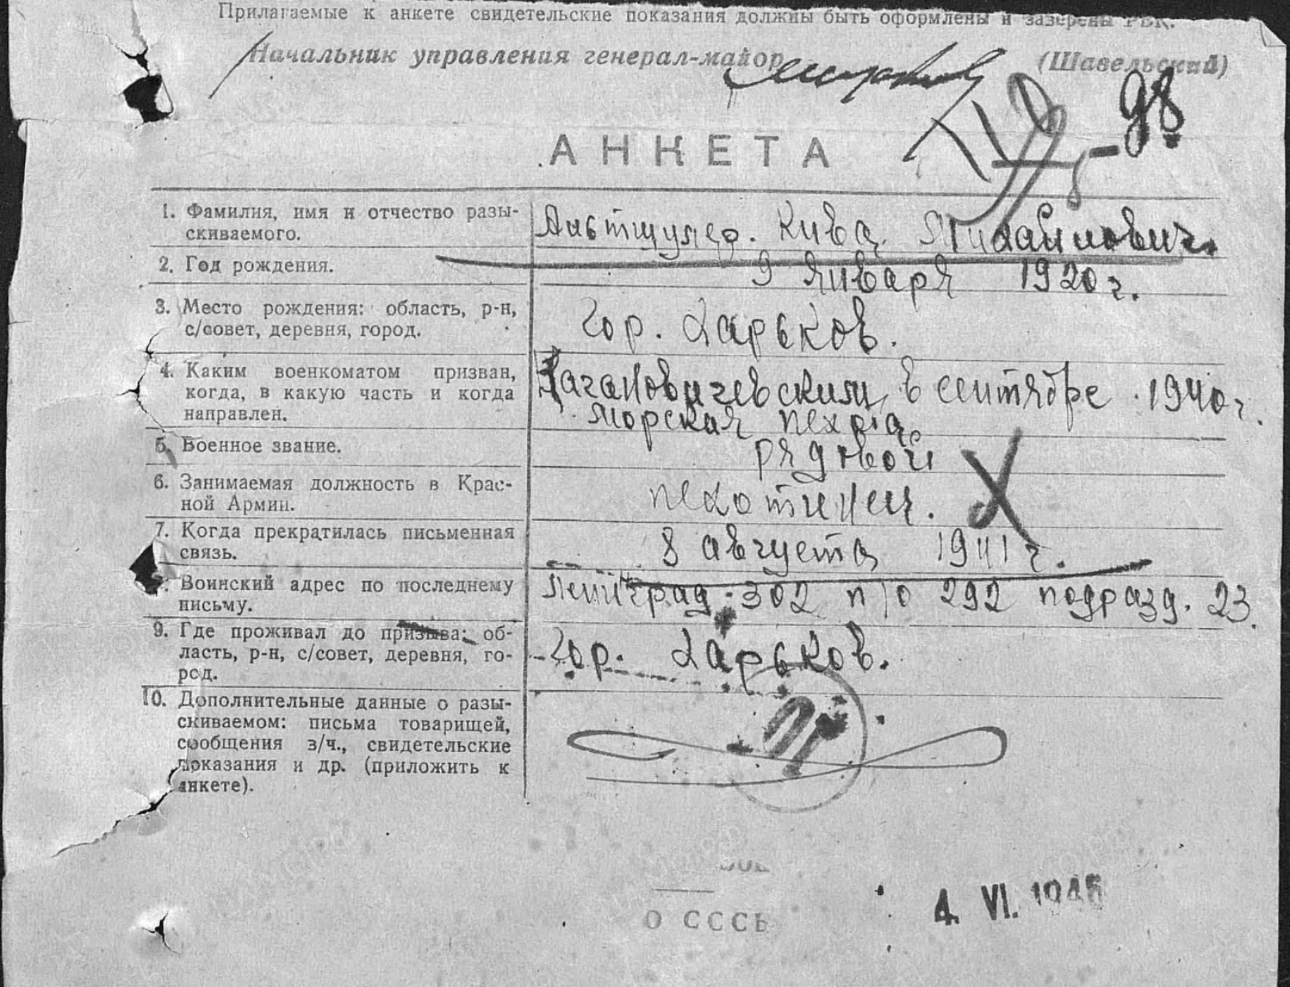 Прилагаемые к анкете свидетельские показания должны быть оформлены и заверены РВК.
Начальник управления генерал-майор (Шавельский)
98
АНКЕТА
1. Фамилия, имя и отчество разы-
скиваемого.
Альтшулер. Кива. Михайлович.
2. Год рождения.
9 января 1920 г.
3. Место рождения: область, р-н,
с/совет, деревня, город.
Гор. Харьков.
4. Каким военкоматом призван,
когда, в какую часть и когда
направлен.
Кагановичевским, в сентябре 1940 г.
морская пехота
5. Военное звание.
рядовой
6. Занимаемая должность в Крас-
ной Армии.
пехотинец.
7. Когда прекратилась письменная
связь.
8 августа 1941 г.
8. Воинский адрес по последнему
письму.
Ленинград-302 п/о 292 подразд. 23.
9. Где проживал до призыва: об-
ласть, р-н, с/совет, деревня, го-
род.
Гор. Харьков.
10. Дополнительные данные о разы-
скиваемом: письма товарищей,
сообщения з/ч., свидетельские
показания и др. (приложить к
анкете).
О СССР
4. VI. 1946